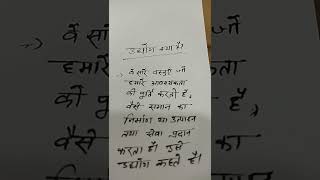 उद्योग क्या है।
वे सारे वस्तुएं जो
हमारे आवश्यकता
की पूर्ति करती है,
वैसे समान का
निर्माण या उत्पादन
तथा सेवा प्रदान
करता है। उसे
उद्योग कहते है।